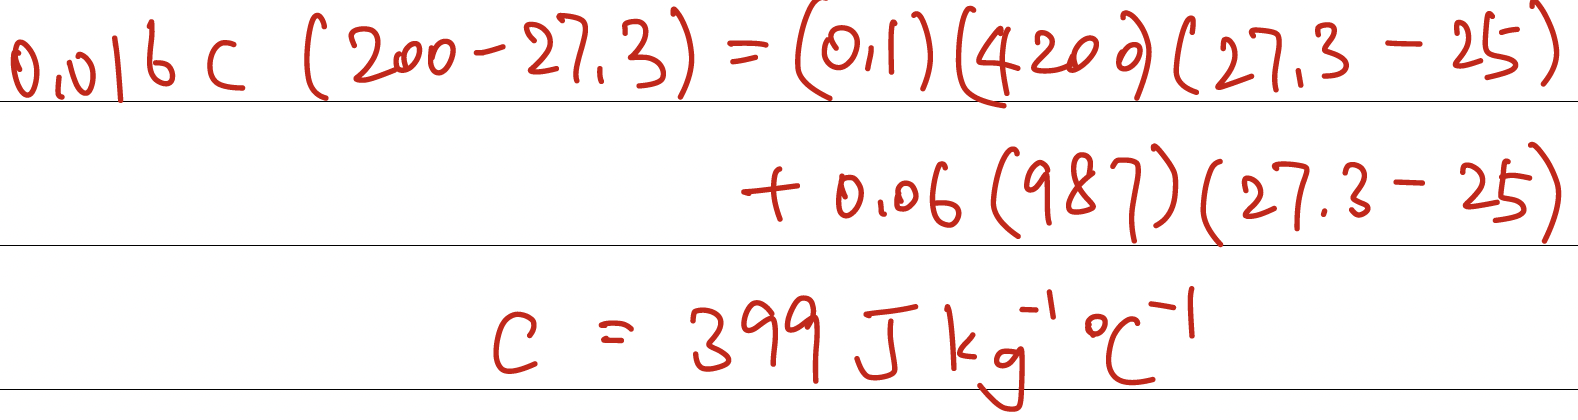 0.016 c (200 - 27.3) = (0.1)(4200)(27.3 - 25)
+ 0.06 (987)(27.3 - 25)
C = 399 J kg⁻¹ °C⁻¹